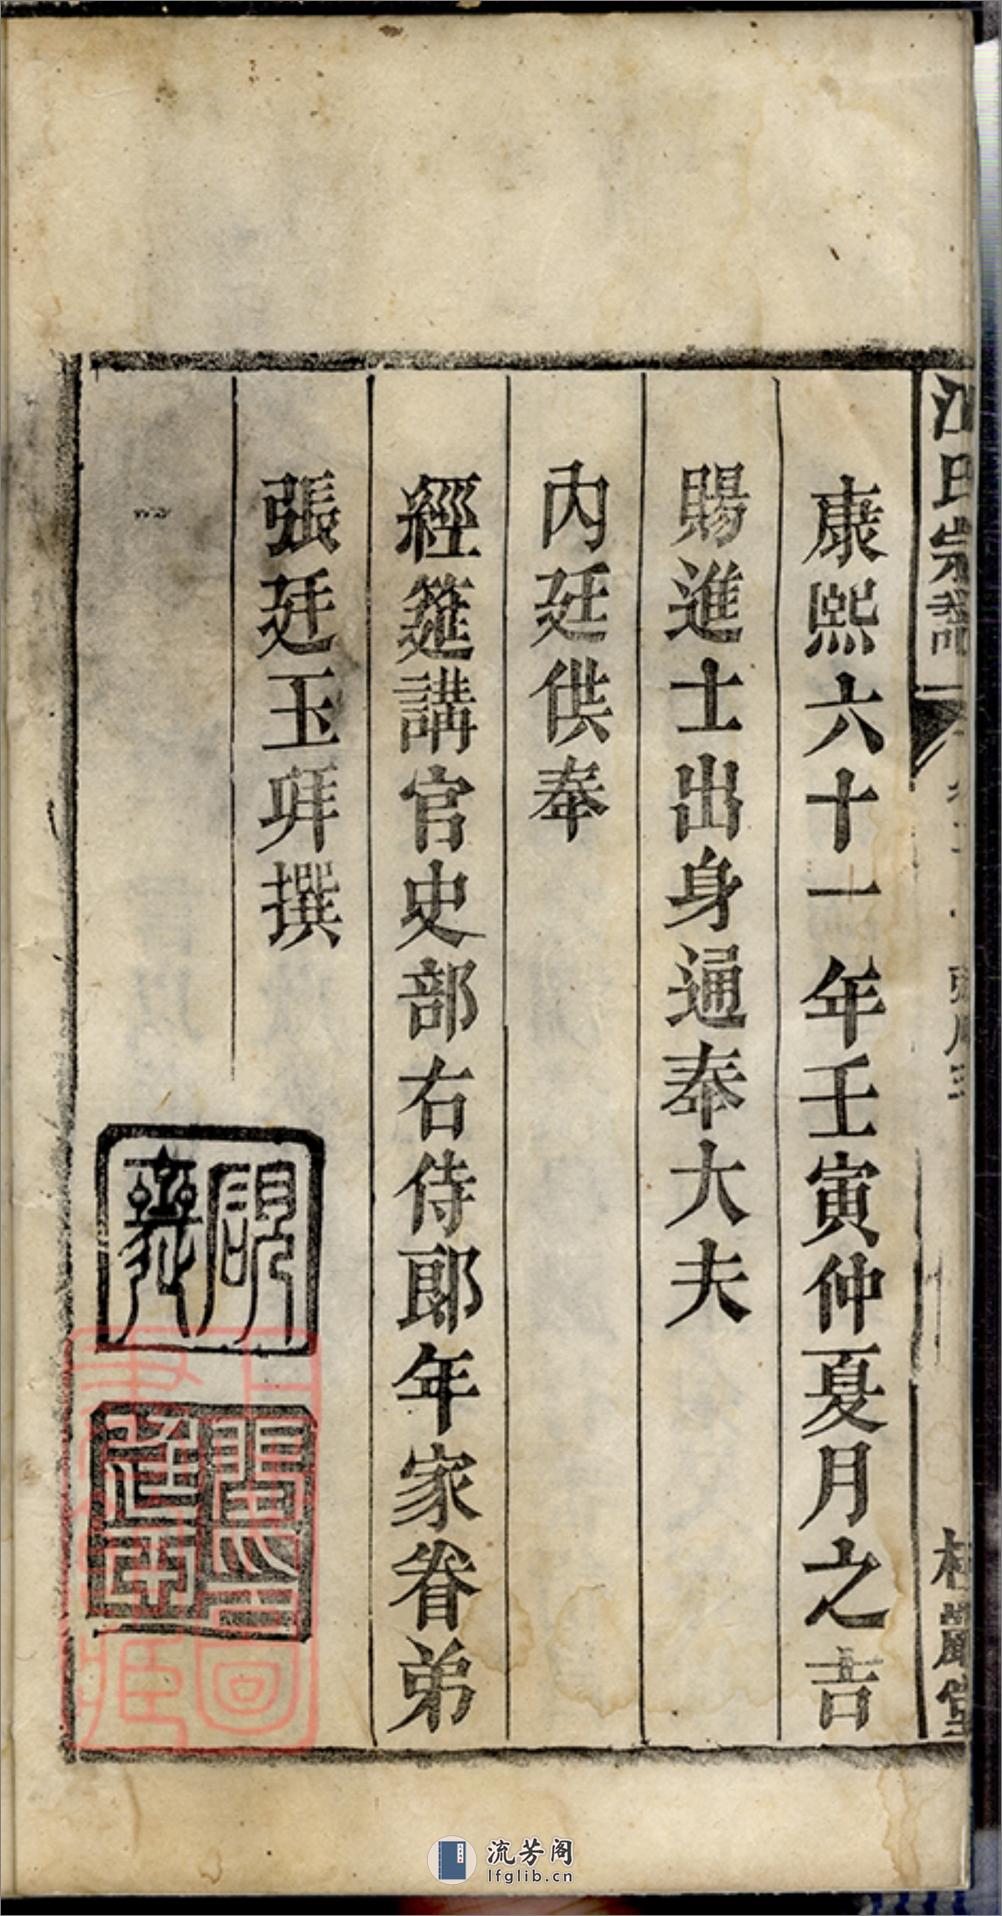 江氏宗譜
康熙六十一年壬寅仲夏月之吉
賜進士出身通奉大夫
內廷供奉
經筵講官史部右侍郎年家眷弟
張廷玉拜撰
流芳阁
lfglib.cn